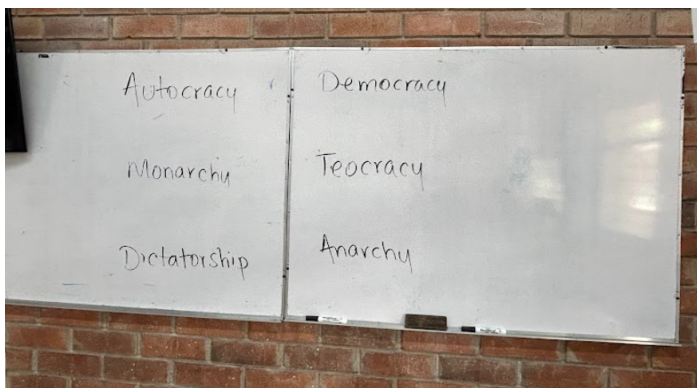 Autocracy
Monarchy
Dictatorship
Democracy
Teocracy
Anarchy